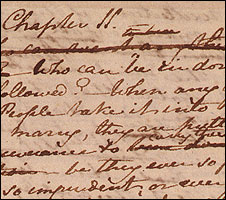 Chapter 11.
Who can be in do
followed? When any
People take it into t
marry, they are
to
be they ever so
so imprudent, or ever